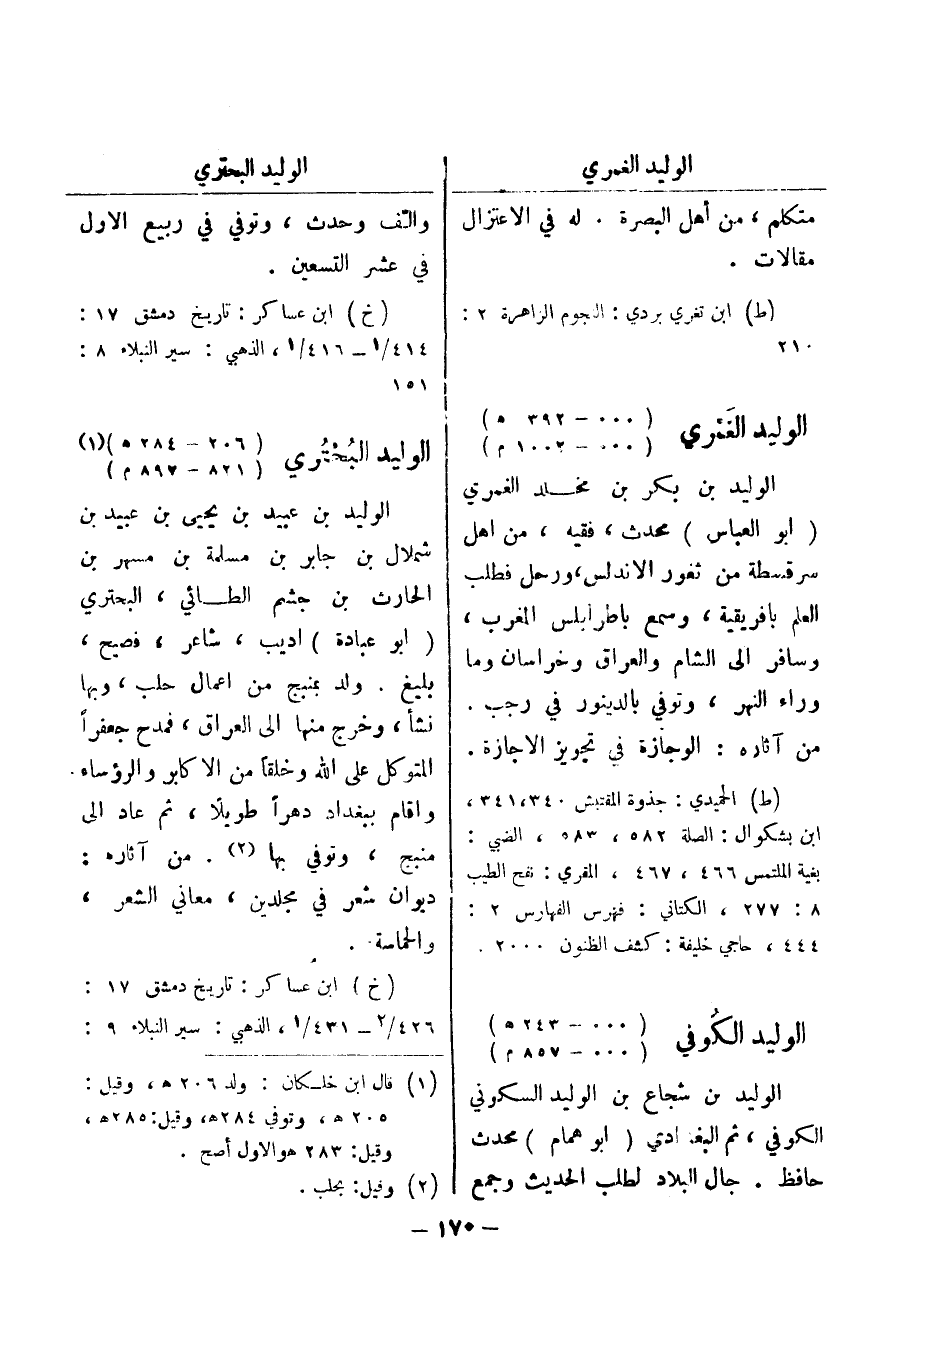 الوليد الغمري
متكلم ، من أهل البصرة . له في الاعتزال
مقالات .
(ط) ابن تغري بردي : النجوم الزاهرة ٢ :
٢١٠
الوليد الغَمْري
( ٠٠٠ – ٣٩٢ ه )
( ٠٠٠ – ١٠٠٢ م )
الوليد بن بكر بن مخلد الغمري
( ابو العباس ) محدث ، فقيه ، من اهل
سرقسطة من ثغور الاندلس،ورحل فطلب
العلم بافريقية ، وسمع باطرابلس المغرب ،
وسافر الى الشام والعراق وخراسان وما
وراء النهر ، وتوفي بالدينور في رجب .
من آثاره : الوجازة في تجويز الاجازة .
(ط) الحميدي : جذوة المقتبس ٣٤٠،٣٤١ ،
ابن بشكوال : الصلة ٥٨٢ ، ٥٨٣ ، الضبي :
بغية الملتمس ٤٦٦ ، ٤٦٧ ، المقري : نفح الطيب
٨ : ٢٧٧ ، الكتاني : فهرس الفهارس ٢ :
٤٤٤ ، حاجي خليفة : كشف الظنون ٢٠٠٠ .
الوليد الكُوفي
( ٠٠٠ – ٢٤٣ ه )
( ٠٠٠ – ٨٥٧ م )
الوليد بن شجاع بن الوليد السكوني
الكوفي ، ثم البغدادي ( ابو همام ) محدث
حافظ . جال البلاد لطلب الحديث وجمع
الوليد البحتري
والّف وحدث ، وتوفي في ربيع الاول
في عشر التسعين .
(خ) ابن عساكر : تاريخ دمشق ١٧ :
٤١٤/١ – ٤١٦/١ ، الذهبي : سير النبلاء ٨ :
١٥١
الوليد البُحْتُري
( ٢٠٦ – ٢٨٤ ه )(١)
( ٨٢١ – ٨٩٧ م )
الوليد بن عبيد بن يحيى بن عبيد بن
شملال بن جابر بن مسلمة بن مسهر بن
الحارث بن جشم الطائي ، البحتري
( ابو عبادة ) اديب ، شاعر ، فصيح ،
بليغ . ولد بمنبج من اعمال حلب ، وبها
نشأ ، وخرج منها الى العراق ، فمدح جعفراً
المتوكل على الله وخلقاً من الاكابر والرؤساء .
واقام ببغداد دهراً طويلًا ، ثم عاد الى
منبج ، وتوفي بها (٢) . من آثاره :
ديوان شعر في مجلدين ، معاني الشعر ،
والحماسة .
(خ) ابن عساكر : تاريخ دمشق ١٧ :
٤٢٦/٢ – ٤٣١/١ ، الذهبي : سير النبلاء ٩ :
(١) قال ابن خلكان : ولد ٢٠٦ ه ، وقيل :
٢٠٥ ه ، وتوفي ٢٨٤ه، وقيل:٢٨٥ه ،
وقيل: ٢٨٣ هوالاول أصح .
(٢) وقيل: بحلب .
– ١٧٠ –